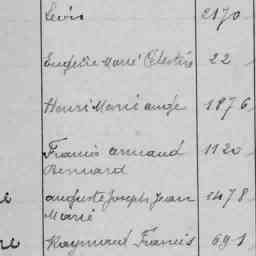 Louis 2170
Eugène Marie Célestin 22
Henri Marie ange 1876
Francis armand 1120
Bernard
auguste Joseph Jean 1478
Marie
Raymond Francis 691